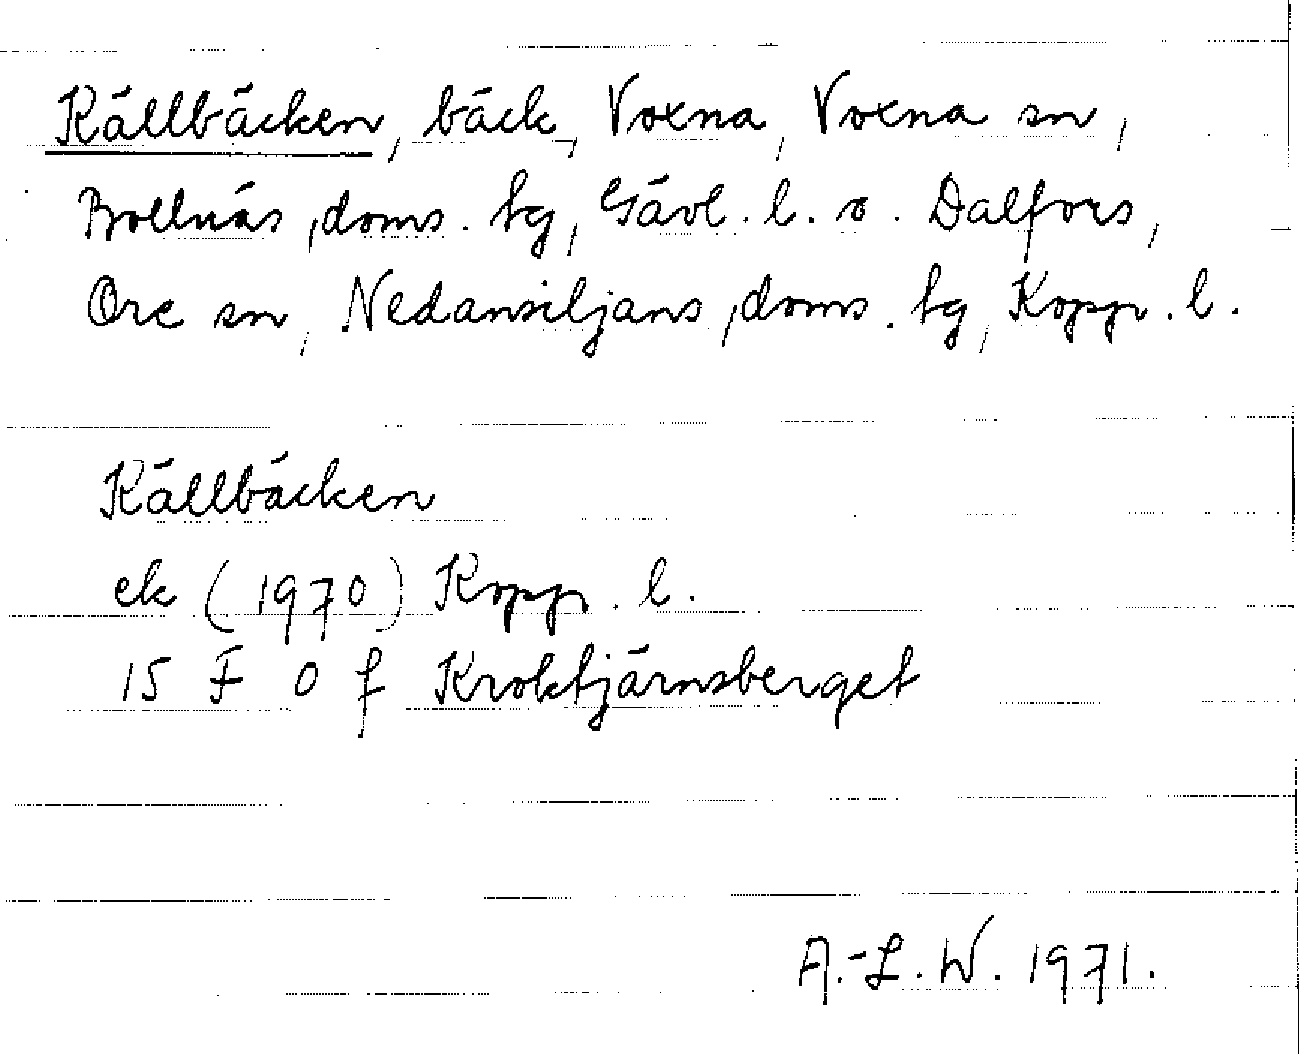 Källbäcken, bäck, Voxna, Voxna sn,
Bollnäs, doms. tg, Gävl. l. o. Dalfors,
Ore sn, Nedansiljans, doms. tg, Kopp. l.
Källbäcken
ek (1970) Kopp. l.
15 F 0 f Kroktjärnsberget
A.-L. W. 1971.